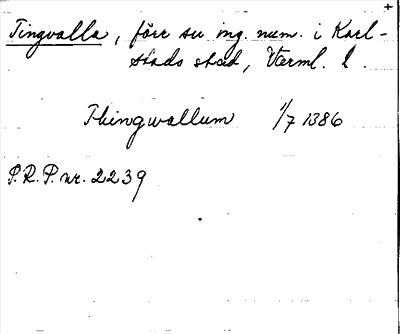 Tingvalla, förr su ing. num. i Karl-
stads stad, Värml. l.
Thingwallum 1/7 1386
P.R.P. nr. 2239